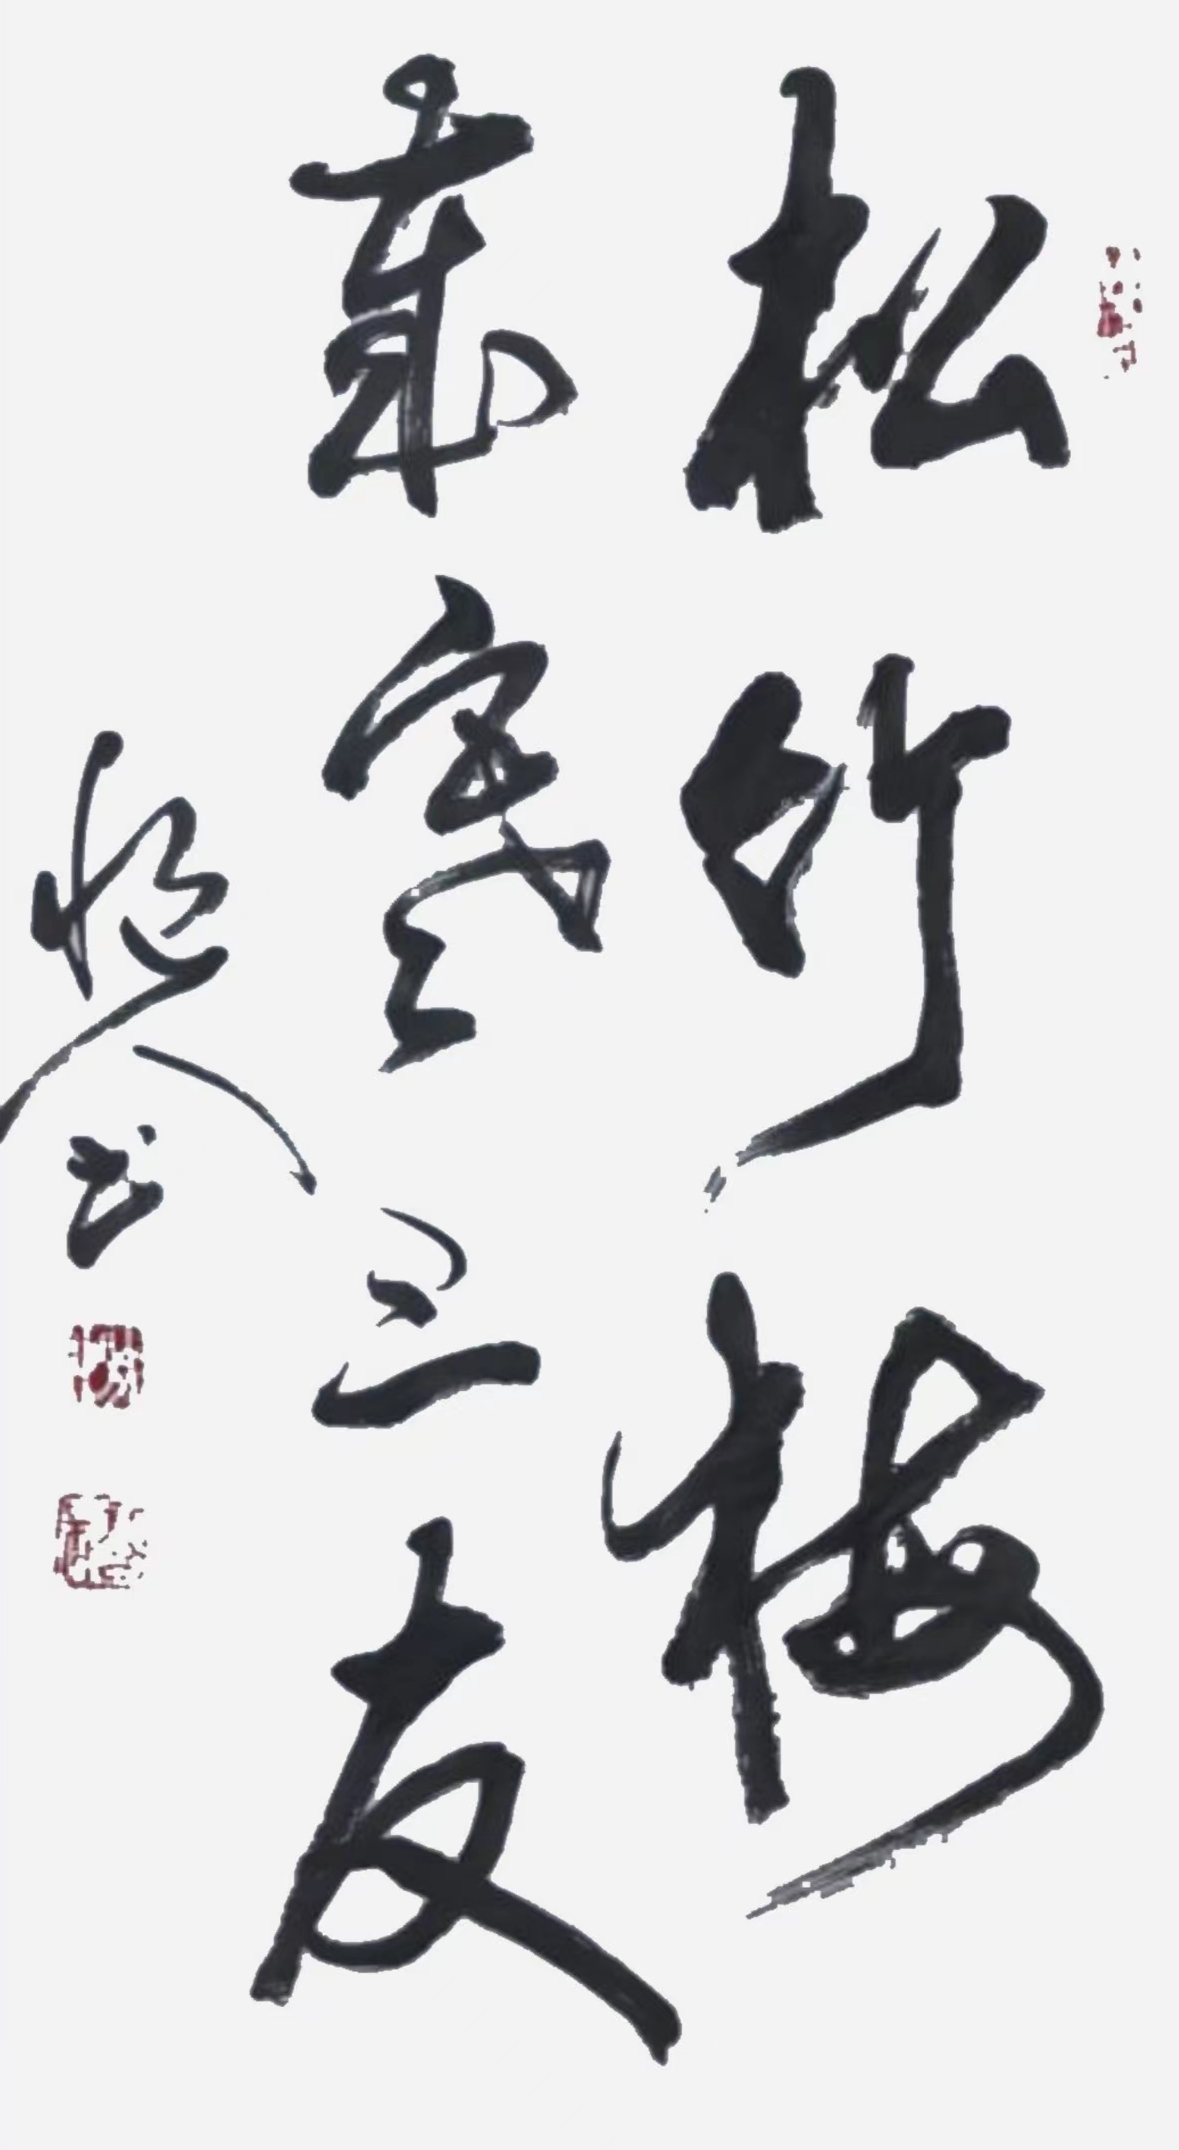 松竹梅
岁寒三友